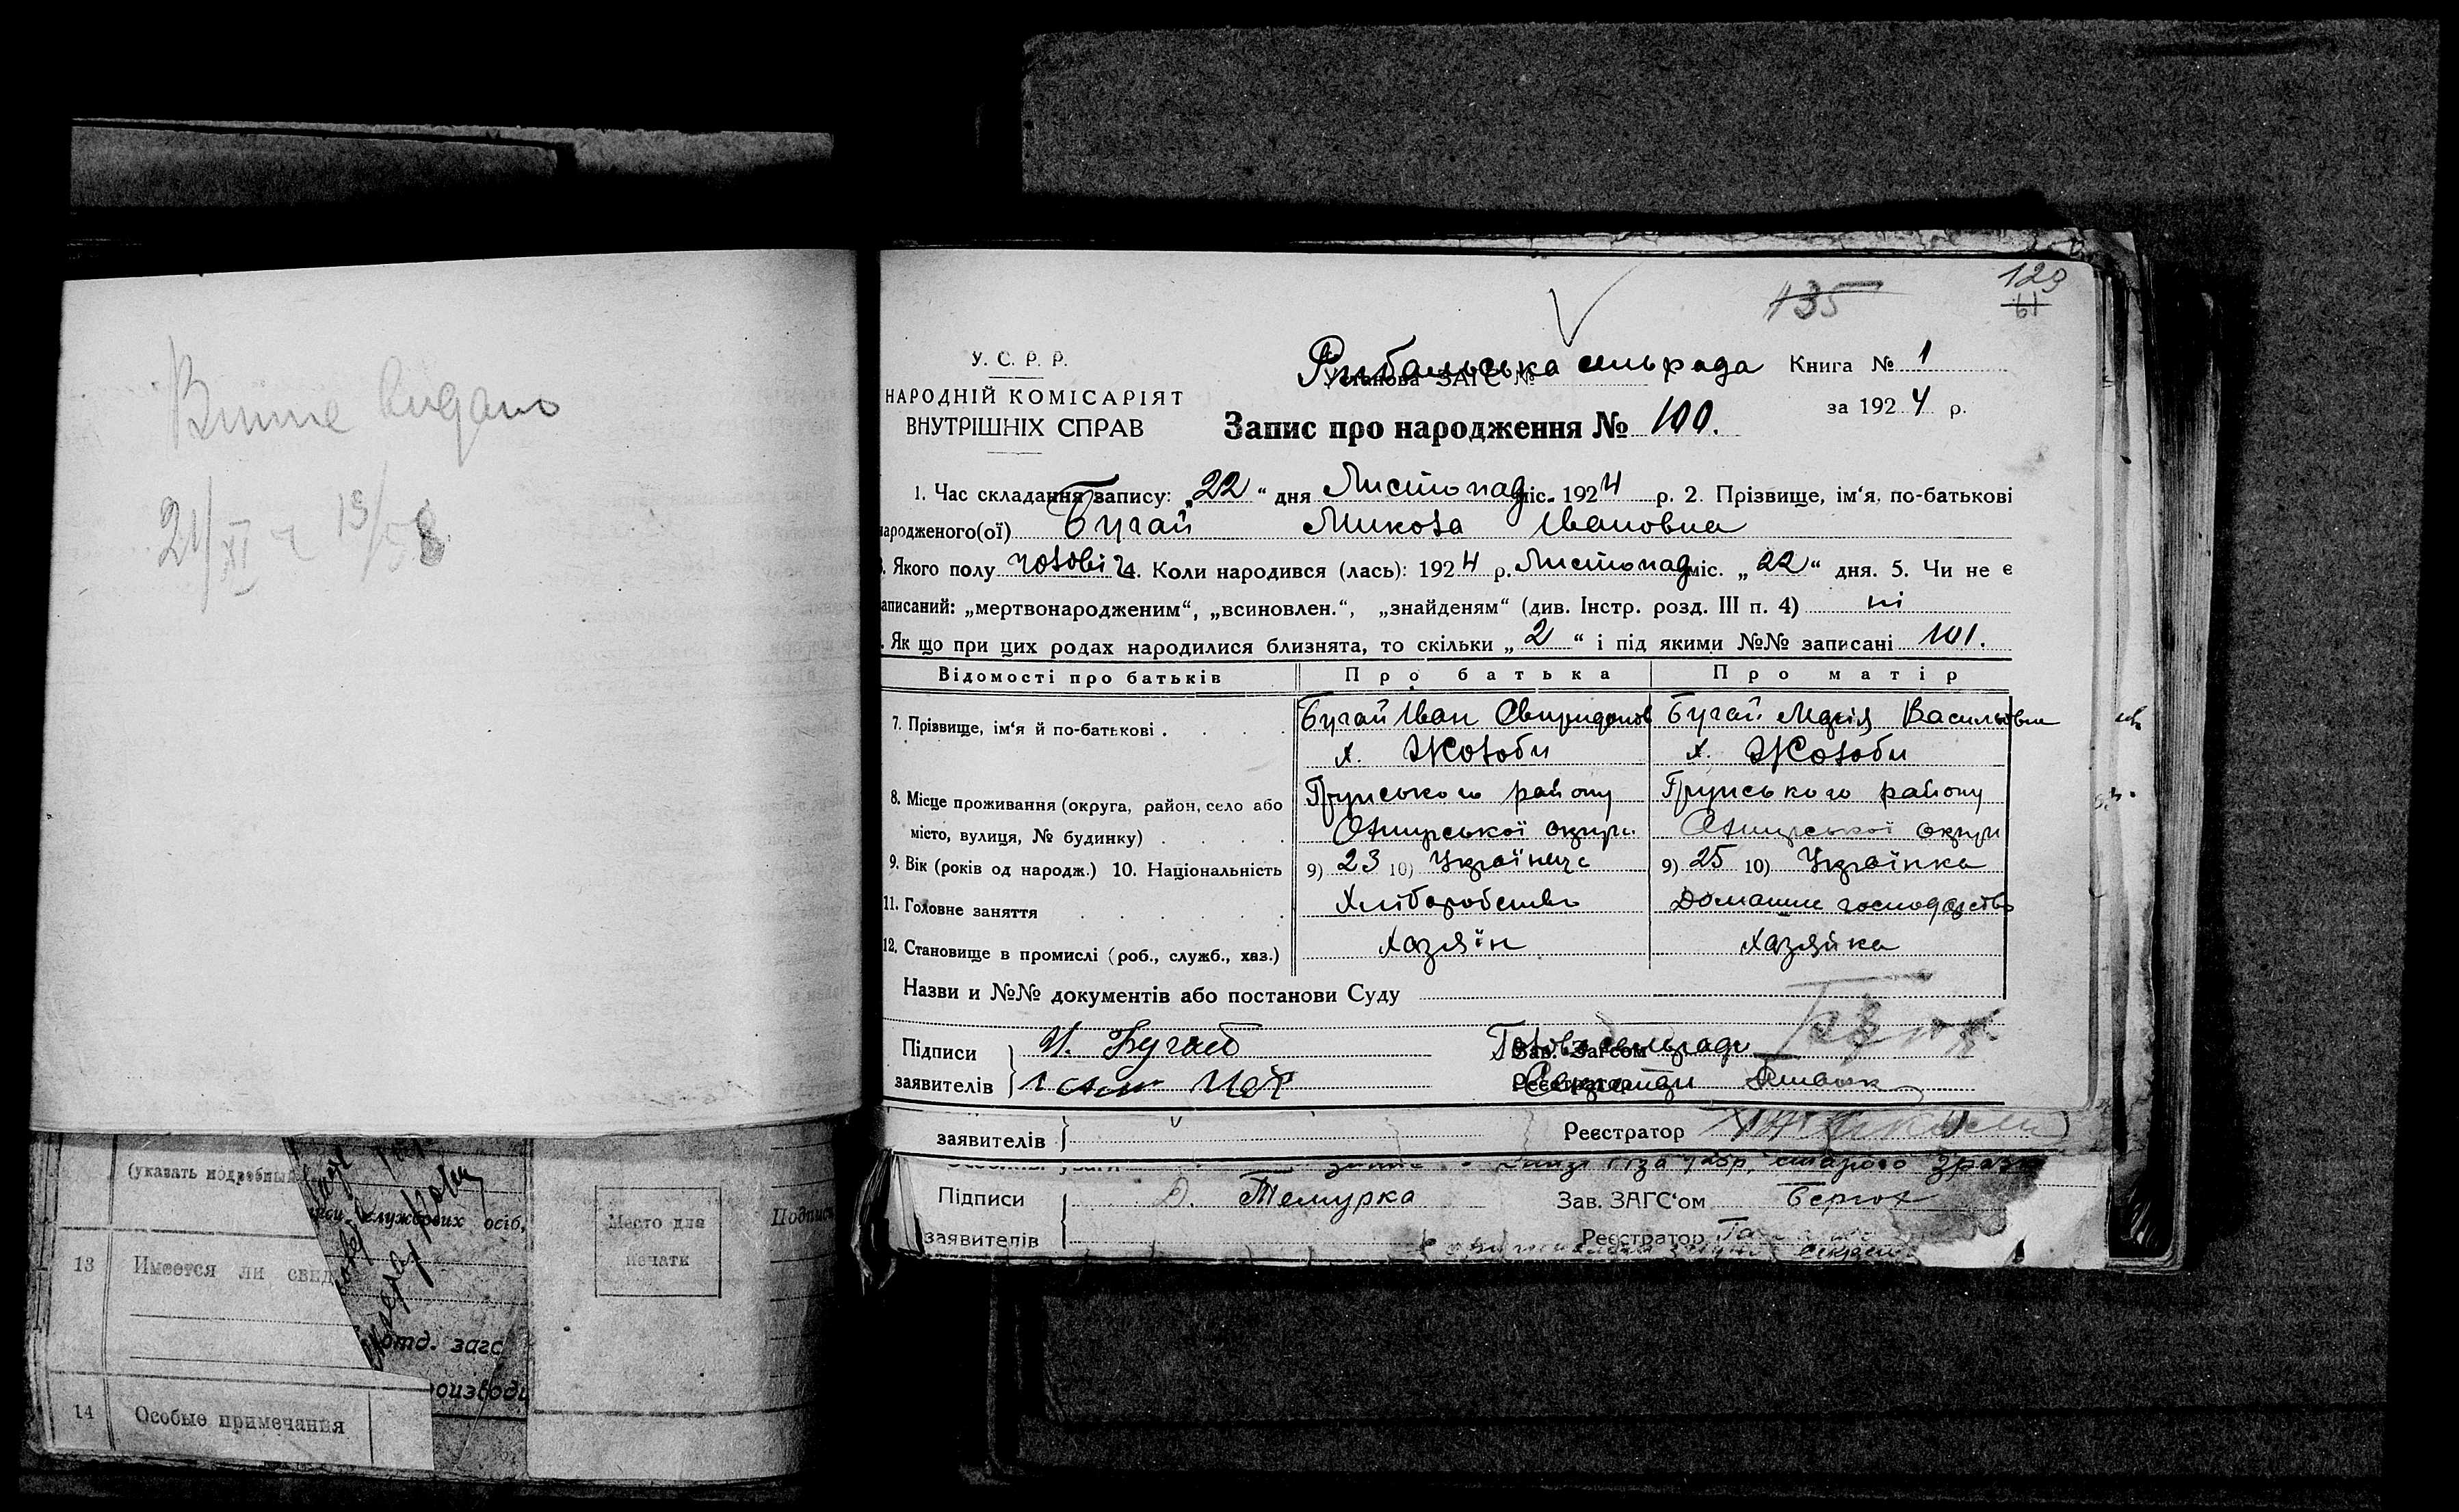 129
135
61
У. С. Р. Р.
НАРОДНІЙ КОМІСАРІЯТ
ВНУТРІШНІХ СПРАВ
Рибальська сільрада
Установа ЗАГС №
Книга № 1
за 1924 р.
Запис про народження № 100.
1. Час складання запису: „22“ дня Листопад міс. 1924 р. 2. Прізвище, ім‘я, по-батькові
народженого(ої) Бугай Микола Івановна
Якого полу чоловіч. 4. Коли народився (лась): 1924 р. Листопад міс. „22“ дня. 5. Чи не є
аписаний: „мертвонародженим“, „всиновлен.“, „знайденям“ (див. Інстр. розд. III п. 4) ні
Як що при цих родах народилися близнята, то скільки „2“ і під якими №№ записані 101.
Відомості про батьків Про батька Про матір
7. Прізвище, ім‘я й по-батькові . Бугай Іван Свиридонов Бугай Марія Васильовна
х. Жолоби х. Жолоби
8. Місце проживання (округа, район, село або Грунського району Грунського району
місто, вулиця, № будинку) округи округи
9. Вік (років од народж.) 10. Національність 9) 23 10) Українець 9) 25 10) Українка
11. Головне заняття Хліборобство Домашнє господарство
12. Становище в промислі (роб., служб., хаз.) Хазяїн Хазяйка
Назви и №№ документів або постанови Суду
Підписи И. Бугай Зав. Загсом Голова сільради
заявителів Реєстратор Секретарь
заявителів Реєстратор
Підписи Д. Темурка Зав. ЗАГС‘ом
заявителів Реєстратор
21/XI
(указать подробный
службових осіб,
Место для
печати
Подпись
13 Имеется ли свид
отд. загс
роизводи
14 Особые примечания